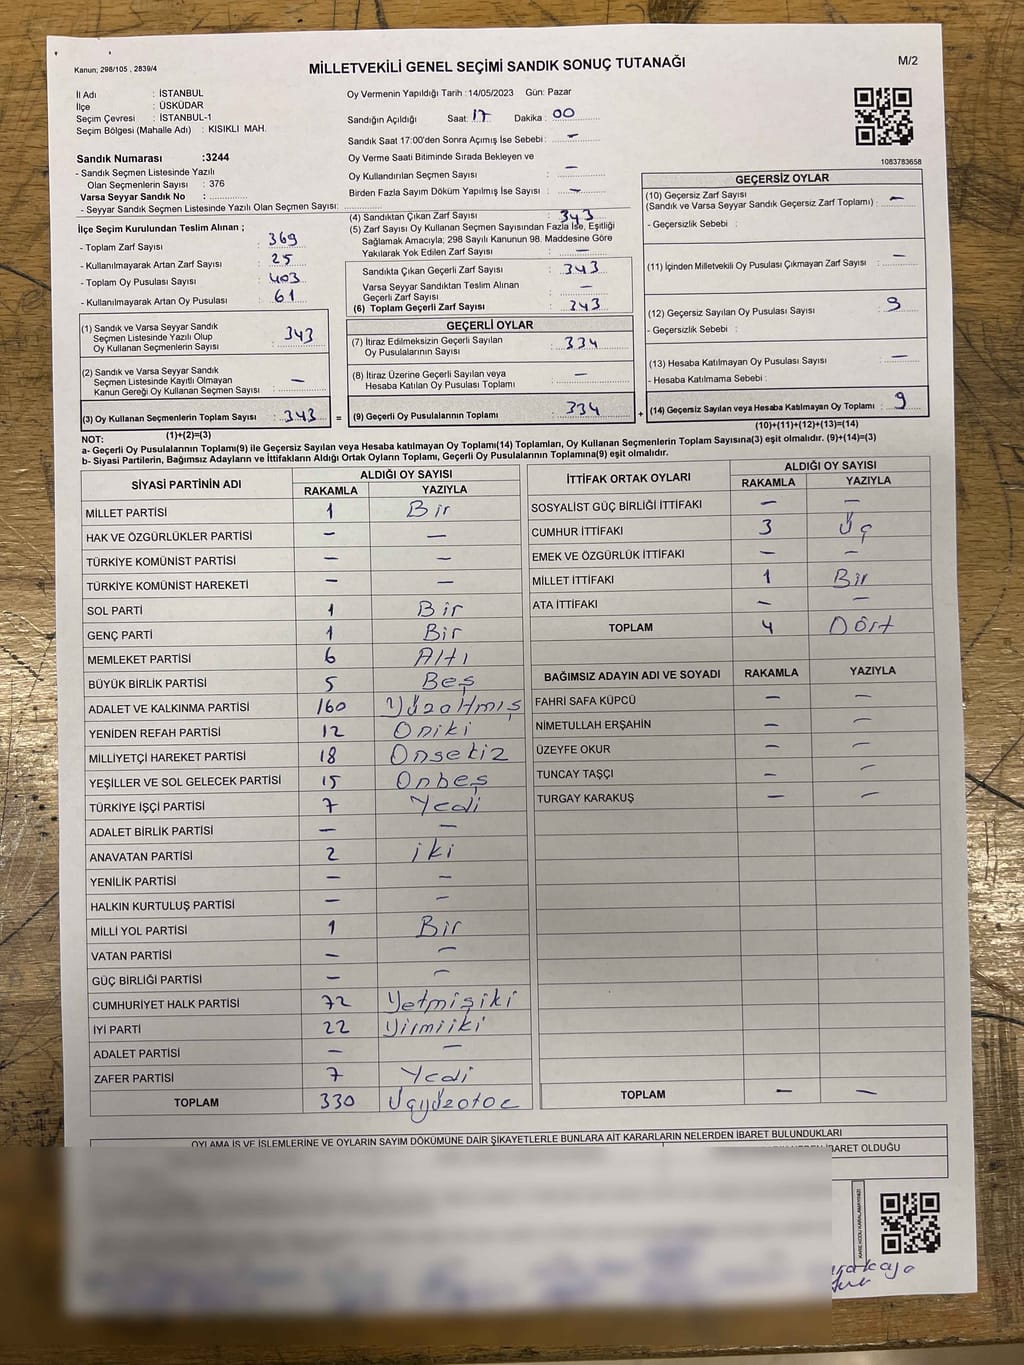 Kanun; 298/105 , 2839/4
MİLLETVEKİLİ GENEL SEÇİMİ SANDIK SONUÇ TUTANAĞI
M/2
İl Adı : İSTANBUL
İlçe : ÜSKÜDAR
Seçim Çevresi : İSTANBUL-1
Seçim Bölgesi (Mahalle Adı) : KISIKLI MAH.
Sandık Numarası :3244
- Sandık Seçmen Listesinde Yazılı
Olan Seçmenlerin Sayısı : 376
Varsa Seyyar Sandık No :
- Seyyar Sandık Seçmen Listesinde Yazılı Olan Seçmen Sayısı:
İlçe Seçim Kurulundan Teslim Alınan ;
- Toplam Zarf Sayısı : 369
- Kullanılmayarak Artan Zarf Sayısı : 25
- Toplam Oy Pusulası Sayısı : 403
- Kullanılmayarak Artan Oy Pusulası : 61
(1) Sandık ve Varsa Seyyar Sandık
Seçmen Listesinde Yazılı Olup
Oy Kullanan Seçmenlerin Sayısı : 343
(2) Sandık ve Varsa Seyyar Sandık
Seçmen Listesinde Kayıtlı Olmayan
Kanun Gereği Oy Kullanan Seçmen Sayısı : —
(3) Oy Kullanan Seçmenlerin Toplam Sayısı : 343
(1)+(2)=(3)
Oy Vermenin Yapıldığı Tarih :14/05/2023 Gün: Pazar
Sandığın Açıldığı Saat: 17 Dakika : 00
Sandık Saat 17:00'den Sonra Açımış İse Sebebi : —
Oy Verme Saati Bitiminde Sırada Bekleyen ve
Oy Kullandırılan Seçmen Sayısı : —
Birden Fazla Sayım Döküm Yapılmış İse Sayısı : —
(4) Sandıktan Çıkan Zarf Sayısı : 343
(5) Zarf Sayısı Oy Kullanan Seçmen Sayısından Fazla İse, Eşitliği
Sağlamak Amacıyla; 298 Sayılı Kanunun 98. Maddesine Göre
Yakılarak Yok Edilen Zarf Sayısı : —
Sandıkta Çıkan Geçerli Zarf Sayısı : 343
Varsa Seyyar Sandıktan Teslim Alınan
Geçerli Zarf Sayısı : —
(6) Toplam Geçerli Zarf Sayısı : 343
GEÇERLİ OYLAR
(7) İtiraz Edilmeksizin Geçerli Sayılan
Oy Pusulalarının Sayısı : 334
(8) İtiraz Üzerine Geçerli Sayılan veya
Hesaba Katılan Oy Pusulası Toplamı : —
= (9) Geçerli Oy Pusulalarının Toplamı : 334 +
1083783658
GEÇERSİZ OYLAR
(10) Geçersiz Zarf Sayısı
(Sandık ve Varsa Seyyar Sandık Geçersiz Zarf Toplamı) : —
- Geçersizlik Sebebi :
(11) İçinden Milletvekili Oy Pusulası Çıkmayan Zarf Sayısı : —
(12) Geçersiz Sayılan Oy Pusulası Sayısı : 9
- Geçersizlik Sebebi :
(13) Hesaba Katılmayan Oy Pusulası Sayısı : —
- Hesaba Katılmama Sebebi :
(14) Geçersiz Sayılan veya Hesaba Katılmayan Oy Toplamı : 9
(10)+(11)+(12)+(13)=(14)
NOT:
a- Geçerli Oy Pusulalarının Toplamı(9) ile Geçersiz Sayılan veya Hesaba katılmayan Oy Toplamı(14) Toplamları, Oy Kullanan Seçmenlerin Toplam Sayısına(3) eşit olmalıdır. (9)+(14)=(3)
b- Siyasi Partilerin, Bağımsız Adayların ve İttifakların Aldığı Ortak Oyların Toplamı, Geçerli Oy Pusulalarının Toplamına(9) eşit olmalıdır.
SİYASİ PARTİNİN ADI ALDIĞI OY SAYISI
RAKAMLA YAZIYLA
MİLLET PARTİSİ 1 Bir
HAK VE ÖZGÜRLÜKLER PARTİSİ — —
TÜRKİYE KOMÜNİST PARTİSİ — —
TÜRKİYE KOMÜNİST HAREKETİ — —
SOL PARTİ 1 Bir
GENÇ PARTİ 1 Bir
MEMLEKET PARTİSİ 6 Altı
BÜYÜK BİRLİK PARTİSİ 5 Beş
ADALET VE KALKINMA PARTİSİ 160 Yüzaltmış
YENİDEN REFAH PARTİSİ 12 Oniki
MİLLİYETÇİ HAREKET PARTİSİ 18 Onsekiz
YEŞİLLER VE SOL GELECEK PARTİSİ 15 Onbeş
TÜRKİYE İŞÇİ PARTİSİ 7 Yedi
ADALET BİRLİK PARTİSİ — —
ANAVATAN PARTİSİ 2 iki
YENİLİK PARTİSİ — —
HALKIN KURTULUŞ PARTİSİ — —
MİLLİ YOL PARTİSİ 1 Bir
VATAN PARTİSİ — —
GÜÇ BİRLİĞİ PARTİSİ — —
CUMHURİYET HALK PARTİSİ 72 Yetmişiki
İYİ PARTİ 22 Yirmiiki
ADALET PARTİSİ — —
ZAFER PARTİSİ 7 Yedi
TOPLAM 330
İTTİFAK ORTAK OYLARI ALDIĞI OY SAYISI
RAKAMLA YAZIYLA
SOSYALİST GÜÇ BİRLİĞİ İTTİFAKI — —
CUMHUR İTTİFAKI 3 Üç
EMEK VE ÖZGÜRLÜK İTTİFAKI — —
MİLLET İTTİFAKI 1 Bir
ATA İTTİFAKI — —
TOPLAM 4 Dört
BAĞIMSIZ ADAYIN ADI VE SOYADI RAKAMLA YAZIYLA
FAHRİ SAFA KÜPCÜ — —
NİMETULLAH ERŞAHİN — —
ÜZEYFE OKUR — —
TUNCAY TAŞÇI — —
TURGAY KARAKUŞ — —
TOPLAM — —
OYLAMA İŞ VE İŞLEMLERİNE VE OYLARIN SAYIM DÖKÜMÜNE DAİR ŞİKAYETLERLE BUNLARA AİT KARARLARIN NELERDEN İBARET BULUNDUKLARI
İBARET OLDUĞU
KARE KODU KARALAMAYINIZ!